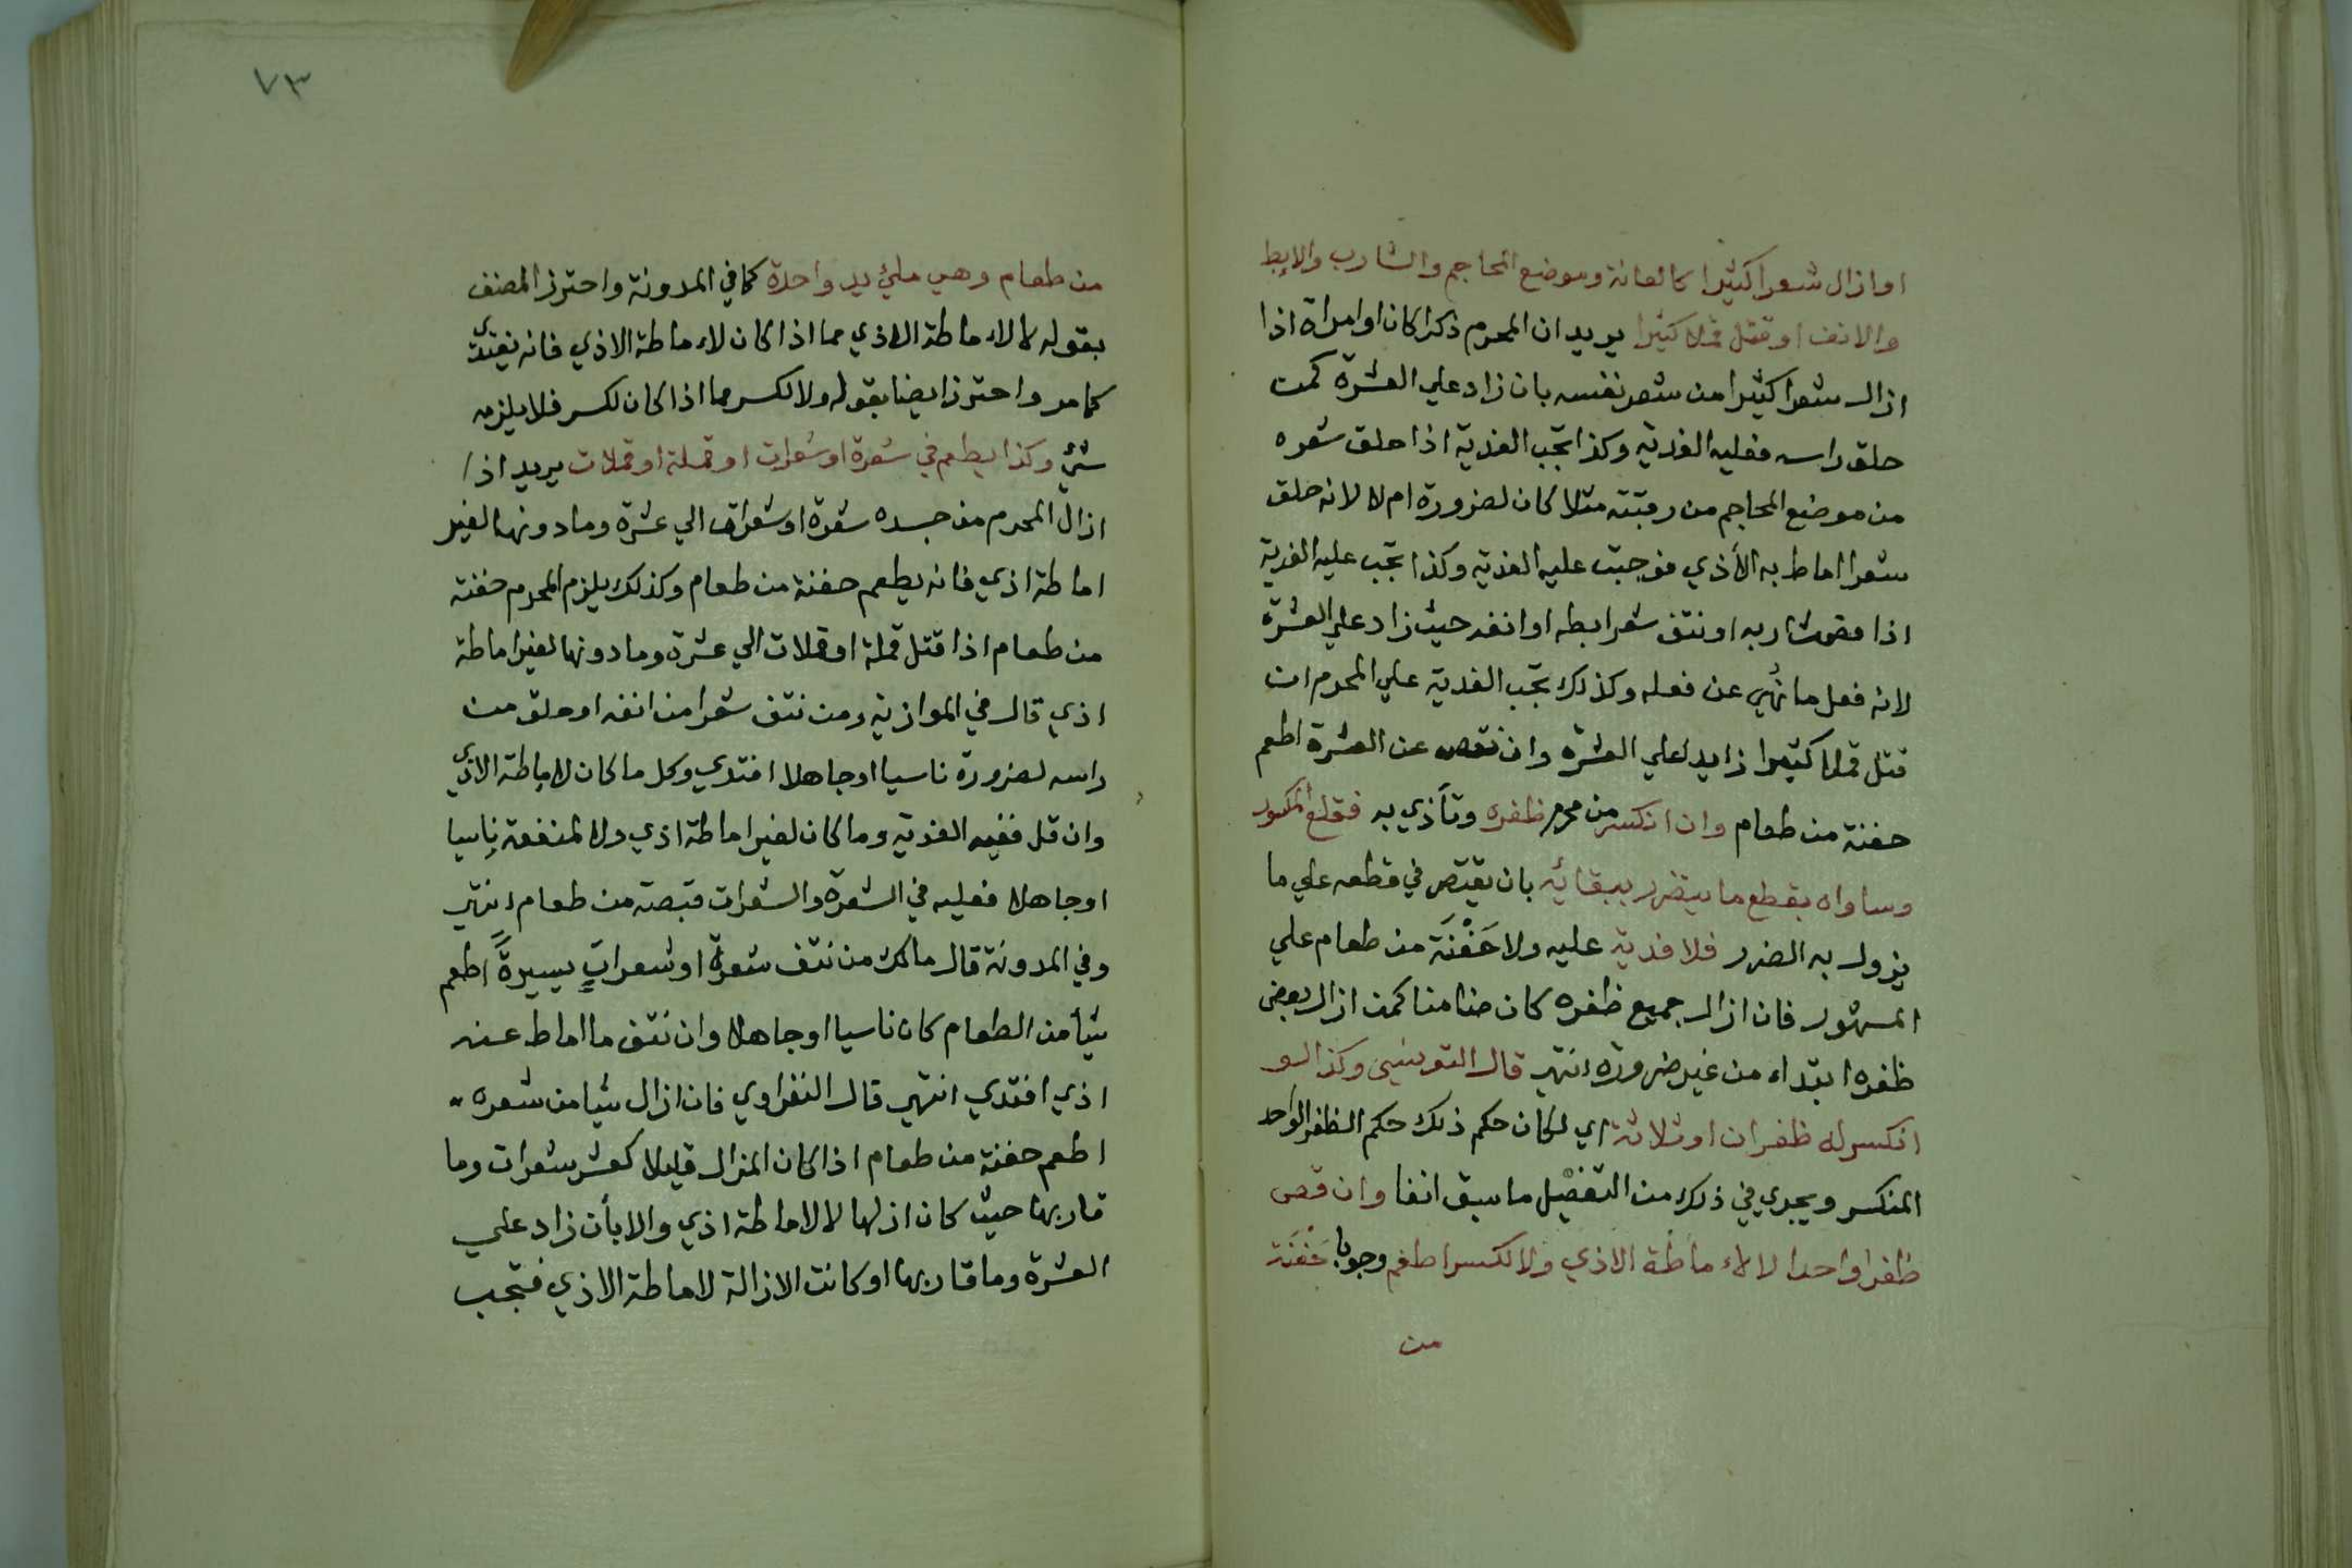 او ازال شعرا كثيرا كالعانة وموضع المحاجم والشارب والابط
والانف او قتل قملا كثيرا يريد ان المحرم ذكرا كان او امراة اذا
ازال شعرا كثيرا من شعر نفسه بان زاد علي العشرة كمن
حلق راسه فعليه الفدية وكذا تجب الفدية اذا حلق شعره
من موضع المحاجم من رقبته مثلا كان لضرورة ام لا لانه حلق
شعرا اماط به الأذي فوجبت عليه الفدية وكذا تجب عليه الفدية
اذا قص شاربه او نتف شعر ابطه او انفه حيث زاد علي العشرة
لانه فعل ما نُهي عن فعله وكذلك تجب الفدية علي المحرم ان
قتل قملا كثيرا زايد لعلي العشرة وان نقص عن العشرة اطعم
حفنة من طعام وان انكسر من محرم ظفره وتأذي به فقلع المكسور
وساواه بقطع ما يتضرر ببقائه بان يقتصر في قطعه علي ما
يزول به الضرر فلا فدية عليه ولا حَفْنَة من طعام علي
المشهور فان ازال جميع ظفره كان ضامنا كمن ازال بعض
ظفره ابتداء من غير ضرورة انتهي قال التونسي وكذا لو
انكسر له ظفران او ثلاثة اي لكان حكم ذلك حكم الظفر الواحد
المنكسر ويجري في ذلك من التفصيل ما سبق انفا وان قص
ظفرا واحدا لا لاماطة الاذي ولا لكسر اطعم وجوبا حَفْنَة
من
٧٣
من طعام وهي ملئ يد واحدة كما في المدونة واحترز المصنف
بقوله لا لاماطة الاذي مما اذا كان لاماطة الاذي فانه يفتدي
كما مر واحترز ايضا بقوله ولا لكسر مما اذا كان لكسر فلا يلزمه
شئ وكذا يطعم في شعرة او شعرات او قملة او قملات يريد اذا
ازال المحرم من جسده شعرة او شعرات الي عشرة وما دونها لغير
اماطة اذي فانه يطعم حفنة من طعام وكذلك يلزم المحرم حفنة
من طعام اذا قتل قملة او قملات الي عشرة وما دونها لغير اماطة
اذي قال في الموازية ومن نتف شعرا من انفه او حلق من
راسه لضرورة ناسيا او جاهلا افتدي وكل ما كان لاماطة الاذي
وان قل ففيه الفدية وما كان لغير اماطة اذي ولا لمنفعة ناسيا
او جاهلا فعليه في الشعرة والشعرات قبصة من طعام انتهي
وفي المدونة قال مالك من نتف شعرة او شعراتٍ يسيرةً اطعم
شيأ من الطعام كان ناسيا او جاهلا وان نتف ما اماط عنه
اذي افتدي انتهي قال النفراوي فان ازال شيا من شعره
اطعم حفنة من طعام اذا كان المزال قليلا كعشر شعرات وما
قاربها حيث كان ازلها لا لاماطة اذي والا بأن زاد علي
العشرة وما قاربها او كانت الازالة لاماطة الاذي فتجب